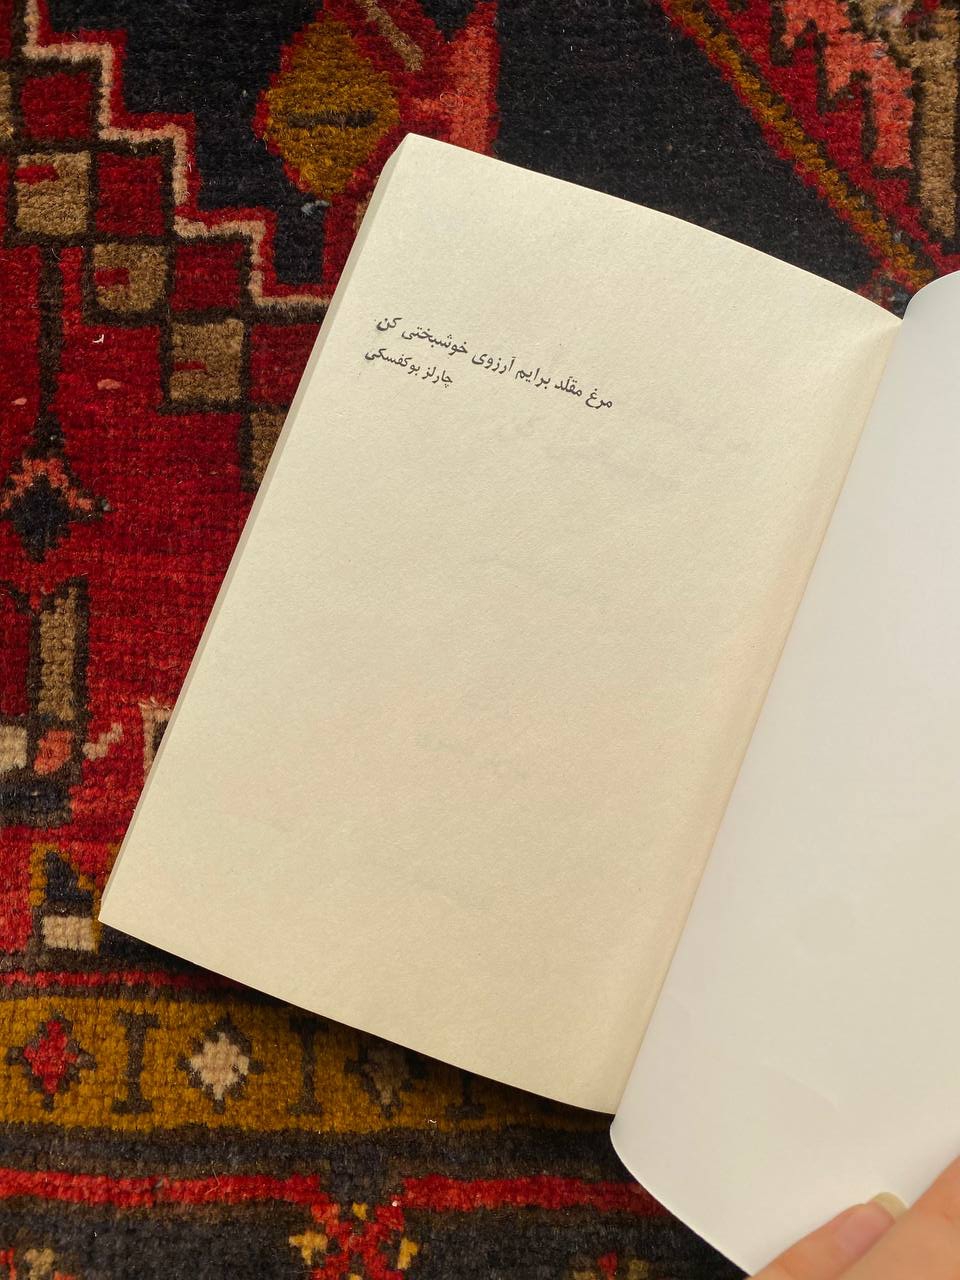 مرغ مقلّد برایم آرزوی خوشبختی کن
چارلز بوکفسکی